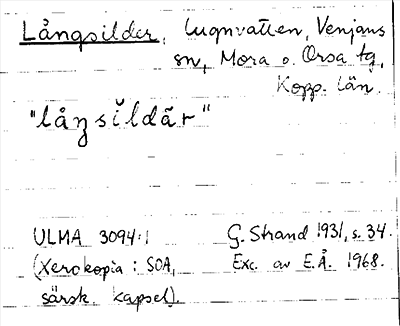 Långsilder, lugnvatten, Venjans
sn, Mora o. Orsa tg,
Kopp. län.
"låŋsĭldär"
ULMA 3094:1 G. Strand 1931, s. 34.
(Xerokopia: SOA, Exc. av E.Å. 1968.
särsk. kapsel).